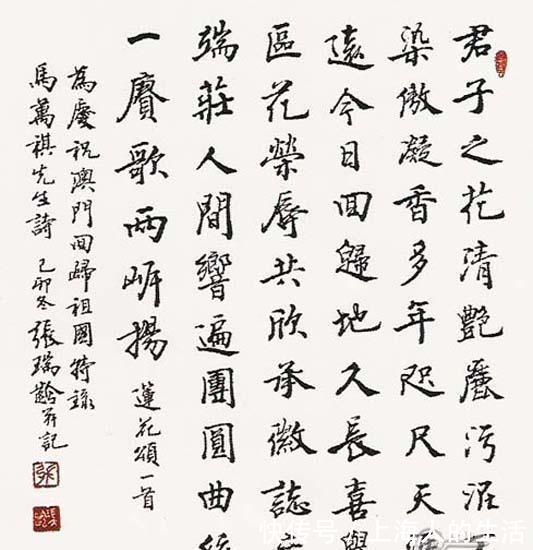 君子之花清艷污泥
染傲凝香多年咫尺天
遠今日回歸地久長喜與
區花榮辱共欣承徽誌
端莊人間響遍團圓曲統
一賡歌兩岸揚 蓮花頌一首
為慶祝澳門回歸祖國特錄
馬萬祺先生詩 己卯冬 張瑞齡并記
快传号/上海人的生活